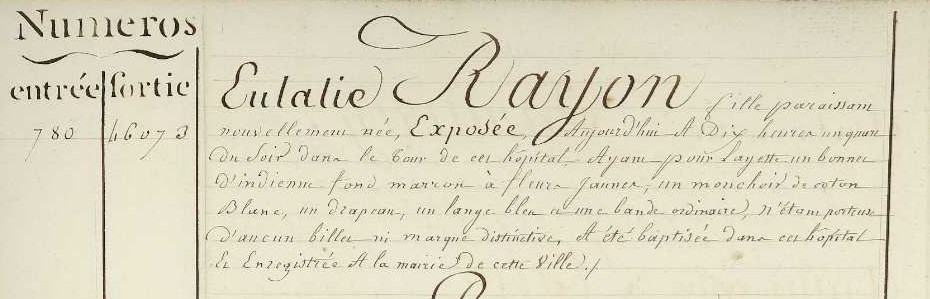 Numeros
entrée sortie
Eulalie Rayon fille paraissant
780 46073 nouvellement née, Exposée, Aujourd'hui A Dix heures un quart
du Soir dans le Tour de cet hôpital, Ayant pour Layette un bonnet
d'indienne fond marron à fleurs jaunes, un mouchoir de coton
Blanc, un drapeau, un lange bleu et une bande ordinaire, n'étant porteuse
d'aucun billet ni marque distinctive, A été baptisée dans cet hôpital
Et Enregistrée A la mairie de cette Ville./